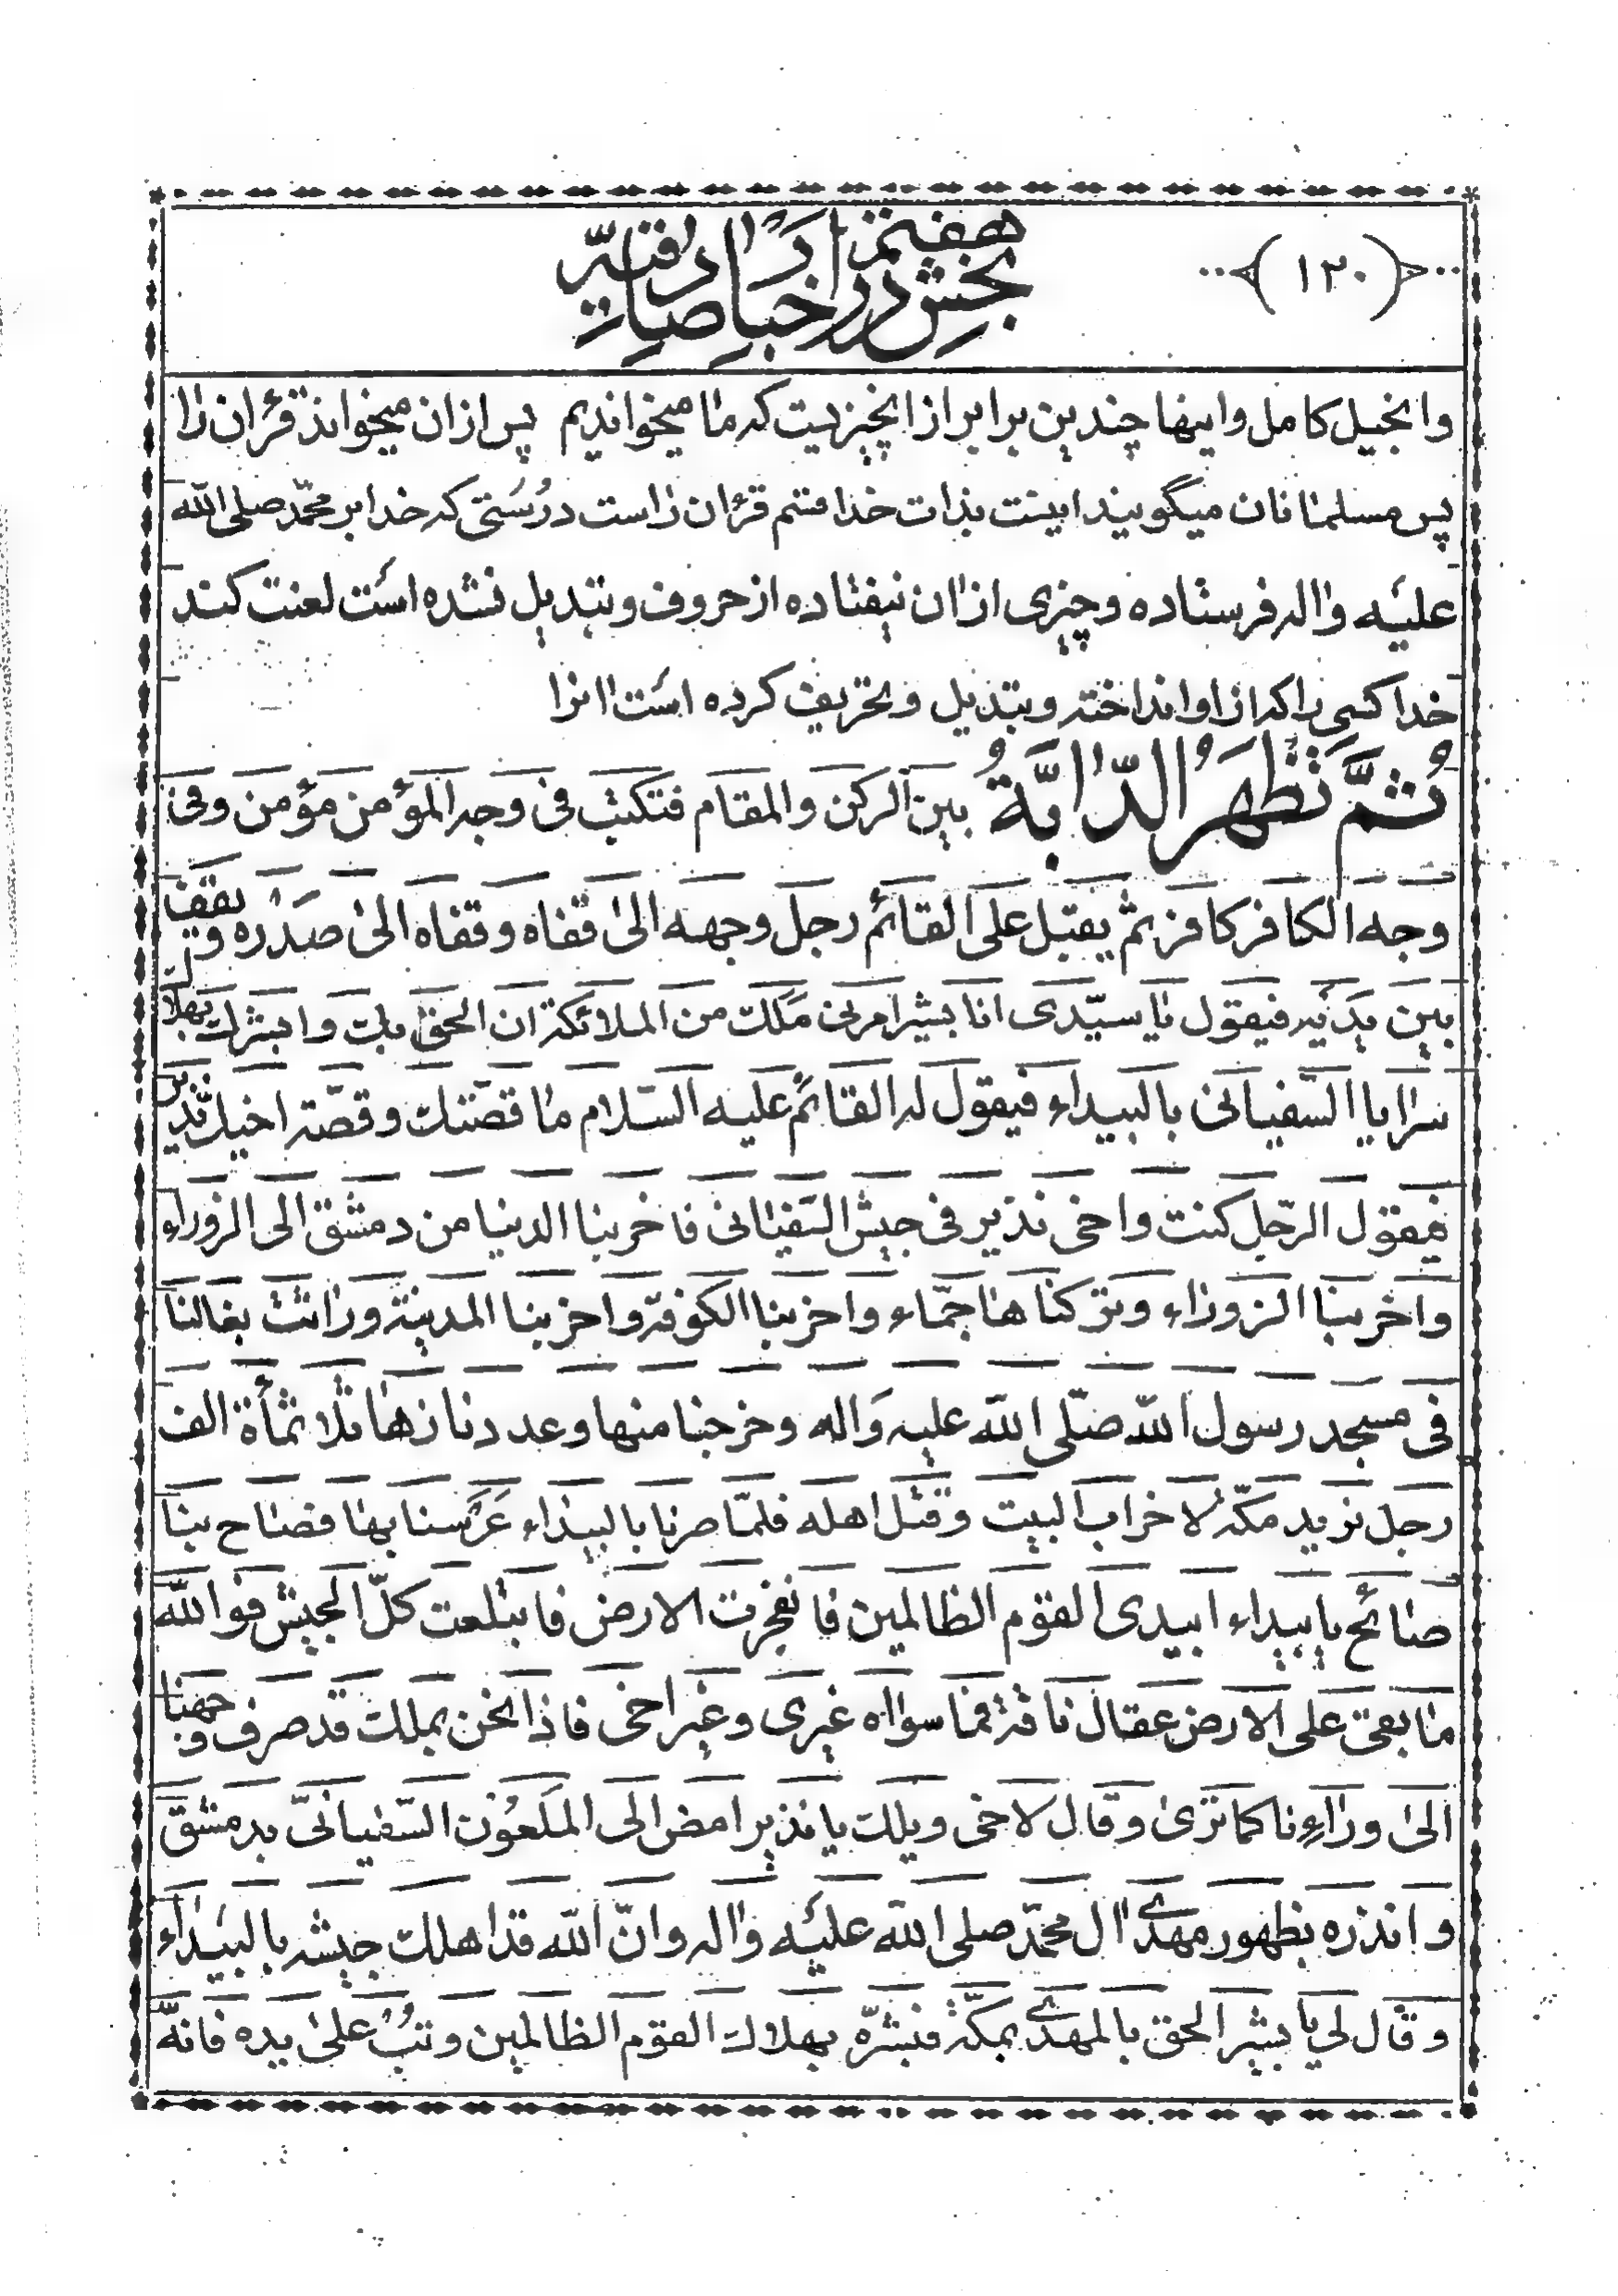 ﴿۱۲۰﴾
بخش هفتم در اخبار صادقیّه
وانجیل کامل واینها چندین برابر از انچیزیست که ما میخواندیم پس ازان میخواند قرءان را
پس مسلمانان میگویند اینست بذات خدا قسم قرءان راست درستی که خدا بر محمّد صلی الله
علیه واله فرستاده وچیزی ازان نیفتاده از حروف وتبدیل نشده است لعنت کند
خدا کسی را که از او انداخته وتبدیل وتحریف کرده است انرا
ثُمَّ تَظْهَرُ الدّابَّةُ بین الرکن والمقام فتکتب فی وجه المؤمن مؤمن وفی
وجه الکافر کافر ثم یقبل علی القائم رجل وجهه الی قفاه وقفاه الی صدره ویقف
بین یدیه فیقول یا سیّدی انا بشیر امرنی ملك من الملائکة ان الحق بك وابشرك بهلاك
سرایا السّفیانی بالبیداء فیقول له القائم علیه السّلام ما قصّتك وقصّة اخیك نذیر
فیقول الرّجل کنت واخی نذیر فی جیش السّفیانی فاخربنا الدنیا من دمشق الی الزوراء
واخربنا الزوراء وترکناها جمّاء واخربنا الکوفة واخربنا المدینة وراثت بغالنا
فی مسجد رسول الله صلّی الله علیه واله وخرجنا منها وعددنا زهاء ثلاثمأة الف
رجل نرید مکّة لاخراب البیت وقتل اهله فلمّا صرنا بالبیداء عرّسنا بها فصاح بنا
صائح یا بیداء ابیدی القوم الظالمین فانفجرت الارض فابتلعت کلّ الجیش فو الله
ما بقی علی الارض عقال ناقة فما سواه غیری وغیر اخی فاذا نحن بملك قد صرف وجهنا
الی ورائنا کما تری وقال لاخی ویلك یا نذیر امض الی الملعون السّفیانیّ بدمشق
وانذره بظهور مهدی ال محمّد صلی الله علیه واله وانّ الله قد اهلك جیشه بالبیداء
وقال لی یا بشیر الحق بالمهدی بمکّة فبشّره بهلاك القوم الظالمین وتب علی یده فانّه